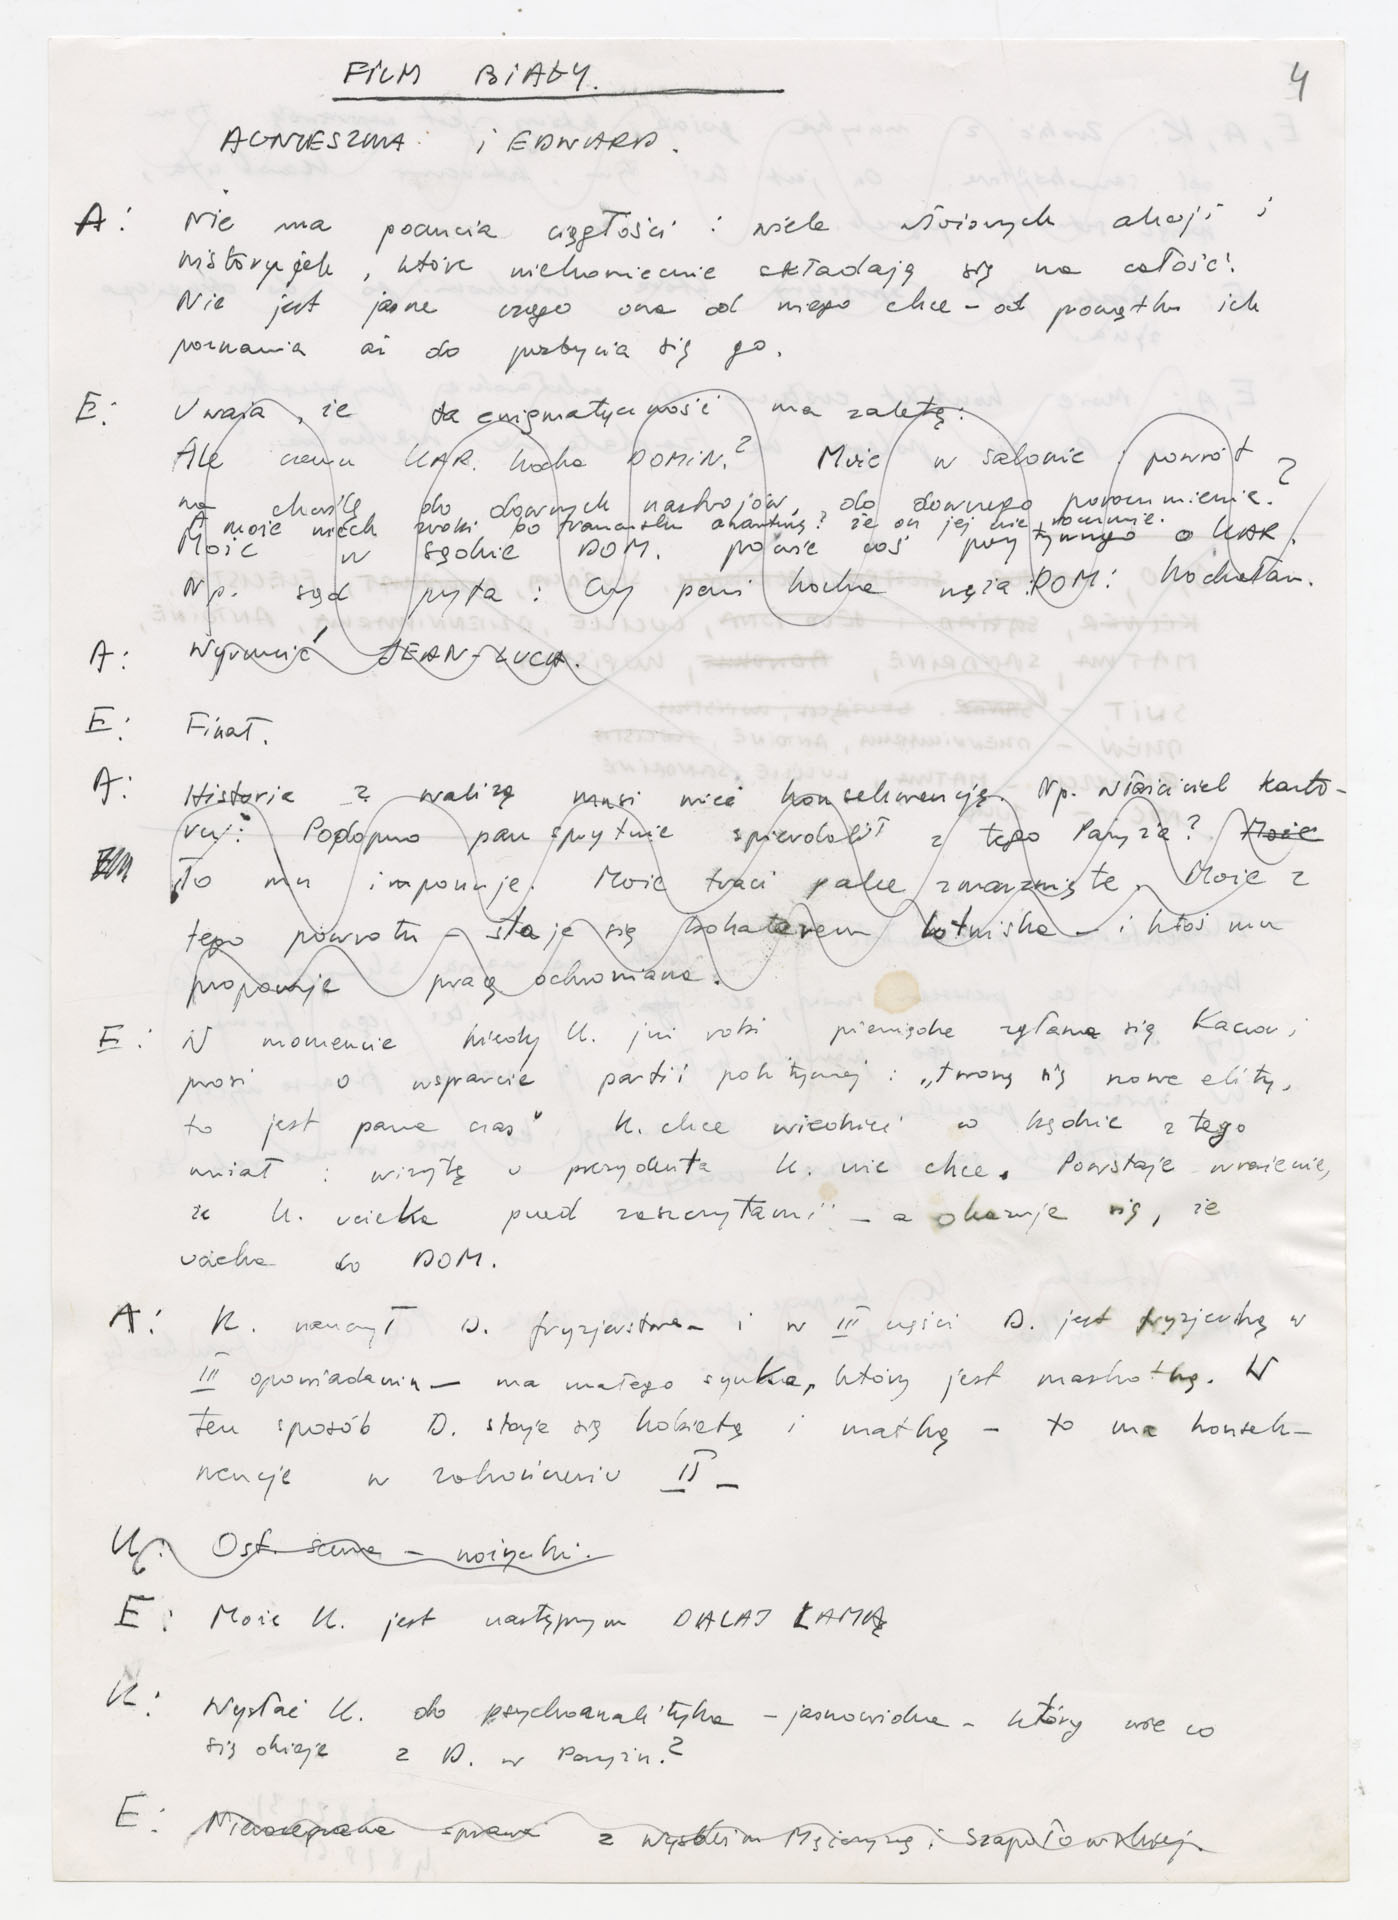 FILM BIAŁY.
4
AGNIESZKA i EDWARD.
A: Nie ma poczucia ciągłości : wiele akcji i
historyjek, które niekoniecznie składają się na całość.
Nie jest jasne czego ona od niego chce – od początku ich
poznania aż do pozbycia się go.
E: Uważa, że ta enigmatyczność ma zaletę:
Ale czemu KAR. kocha DOMIN.? Może w salonie : powrót
na chwilę do dawnych nastrojów, do dawnego porozumienia.?
A może niech zwoki po francusku? że on jej nie rozumie.
Może w sądzie DOM. powie coś pozytywnego o KAR.
Np. sąd pyta : Czy pani kocha męża : DOM: kochałam.
A: Wyrzucić JEAN-LUCA.
E: Finał.
A: Historia z walizą musi mieć konsekwencję. Np. właściciel karto-
: Podobno pan sprytnie spierdolił z tego Paryża? Może
To mu imponuje. Może traci palce zmarznięte. Może z
tego powrotu – staje się bohaterem lotniska – i ktoś mu
proponuje pracę ochroniarza.
E: W momencie kiedy K. już robi pieniądze zgłasza się Kaczor i
prosi o wsparcie partii politycznej : „tworzą się nowe elity,
to jest pana czas" K. chce wiedzieć co będzie z tego
miał : wizytę u prezydenta K. nie chce. Powstaje wrażenie,
że K. ucieka przed zaszczytami – a okazuje się, że
ucieka do DOM.
A: K. nauczył D. fryzjerstwa – i w III części D. jest fryzjerką w
III opowiadaniu – ma małego synka, który jest maskotką. W
ten sposób D. staje się kobietą i matką – to ma konsek-
wencje w zakończeniu II –
K: Ost. scena – nożyczki.
E: Może K. jest następnym DALAJ LAMĄ
K: Wysłać K. do psychoanalityka – jasnowidza – który wie co
się dzieje z D. w Paryżu.?
E: sprawa z wysokim Mężczyzną i Szapołowskiej.